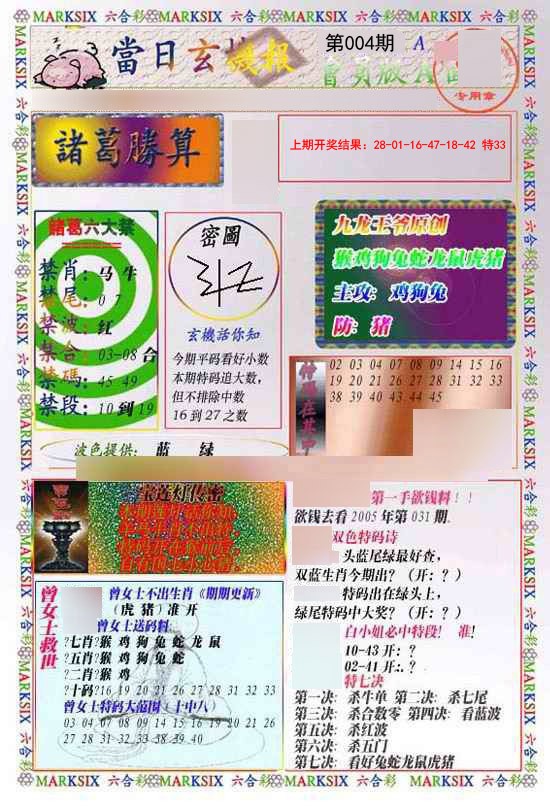 MARKSIX 六合彩 MARKSIX 六合彩 MARKSIX 六合彩 MARKSIX 六合彩
當日玄機報
第004期
A
會員版A面
专用章
諸葛勝算
上期开奖结果：28-01-16-47-18-42 特33
諸葛六大禁
禁肖：马 牛
禁尾：0 7
禁波：红
禁合：03-08 合
禁碼：45 49
禁段：10 到 19
密圖
玄機話你知
今期平码看好小数
本期特码追大数，
但不排除中数
16 到 27 之数
九龙王爷原创
猴鸡狗兔蛇龙鼠虎猪
主攻：鸡狗兔
防：猪
02 03 04 07 08 09 14 15 16
19 20 21 26 27 28 31 32 33
38 39 40 43 44 45
波色提供： 蓝 绿
宝连灯传密
第一手欲钱料！！
欲钱去看 2005 年第 031 期.
双色特码诗
头蓝尾绿最好查，
双蓝生肖今期出？（开：？）
特码出在绿头上，
绿尾特码中大奖？（开：？）
白小姐必中特段！ 准！
10-43 开：？
02-41 开：.？
特七决
第一决：杀牛单 第二决：杀七尾
第三决：杀合数零 第四决：看蓝波
第五决：杀红波
第六决：杀五门
第七决：看好兔蛇龙鼠虎猪
曾女士救世
曾女士不出生肖《期期更新》
（虎 猪）准 开
曾女士送码料
?七肖?猴 鸡 狗 兔 蛇 龙 鼠
?五肖?猴 鸡 狗 兔 蛇
?二肖?猴 鸡
?十码?16 19 20 21 26 27 28 31 32 33
曾女士特码大范围（十中八）
03 04 07 08 09 14 15 16 19 20 21 26
27 28 31 32 33 38 39 40
MARKSIX 六合彩 MARKSIX 六合彩 MARKSIX 六合彩 MARKSIX 六合彩